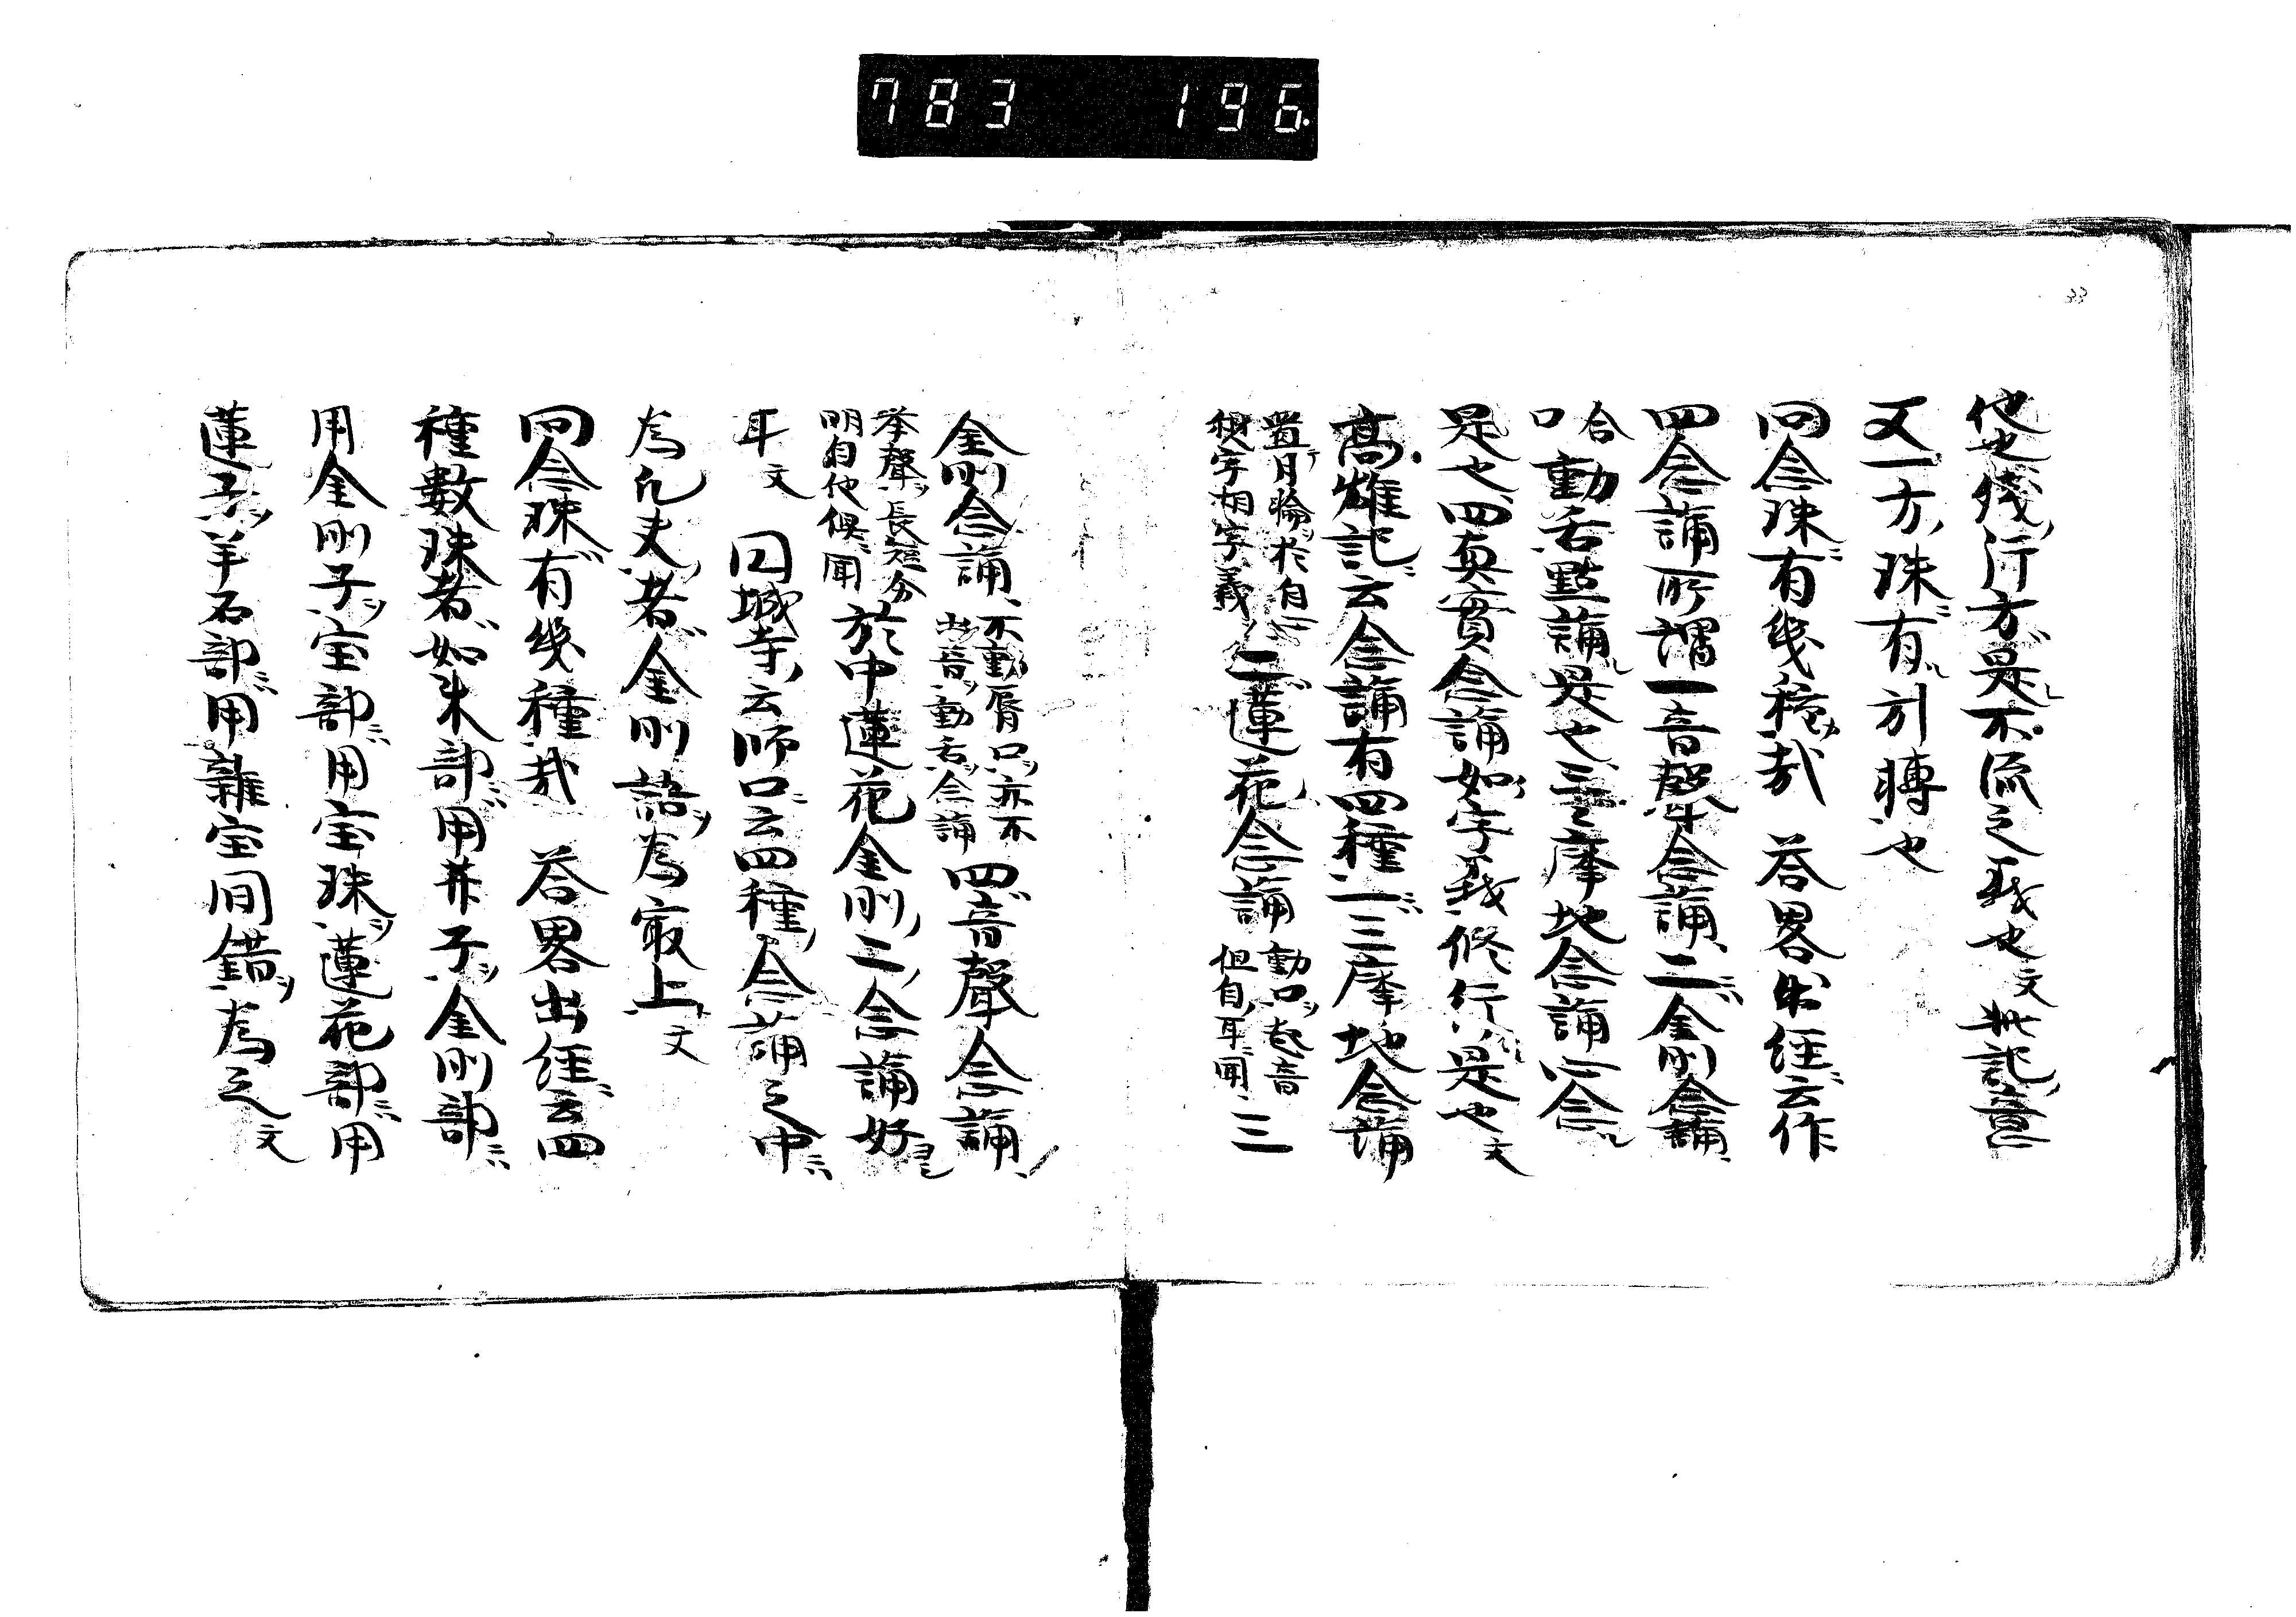 783 196
33
他也残行方是不流之義也文 此記意
又一方珠有引轉也
問念珠有幾種哉 答畧出経云作
四念誦所謂一音聲念誦二金剛念誦
合口動舌默誦是也三三摩地念誦心念
是也四真實念誦如字義修行是也文
高雄記云念誦有四種一三摩地念誦
置月輪於自心
想字相字義二蓮花念誦動口起音
但自耳聞三
金剛念誦不動脣口亦不
出音動舌念誦四音聲念誦
挙聲長短分
明自他俱聞於中蓮花金剛二念誦好
耳文 円城寺云師口云四種念誦之中
為凡夫者金剛語為最上文
問念珠有幾種哉 答畧出経云四
種數珠者如来部用菩子金剛部
用金剛子宝部用宝珠蓮花部用
蓮子羊石部用雜宝間錯為之文